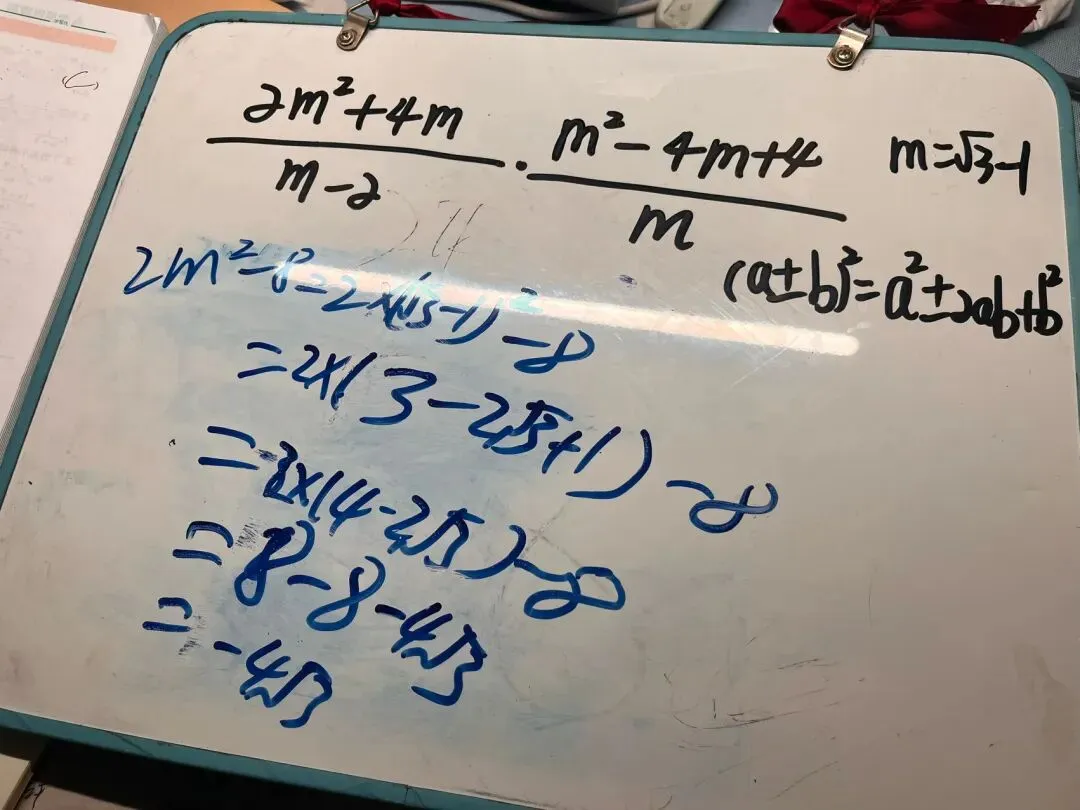 (C)
2m²+4m / m-2 · m²-4m+4 / m
m=√3-1
(a±b)²=a²±2ab+b²
2m²-8=2×(√3-1)²-8
=2×(3-2√3+1)-8
=2×(4-2√3)-8
=8-8-4√3
=-4√3